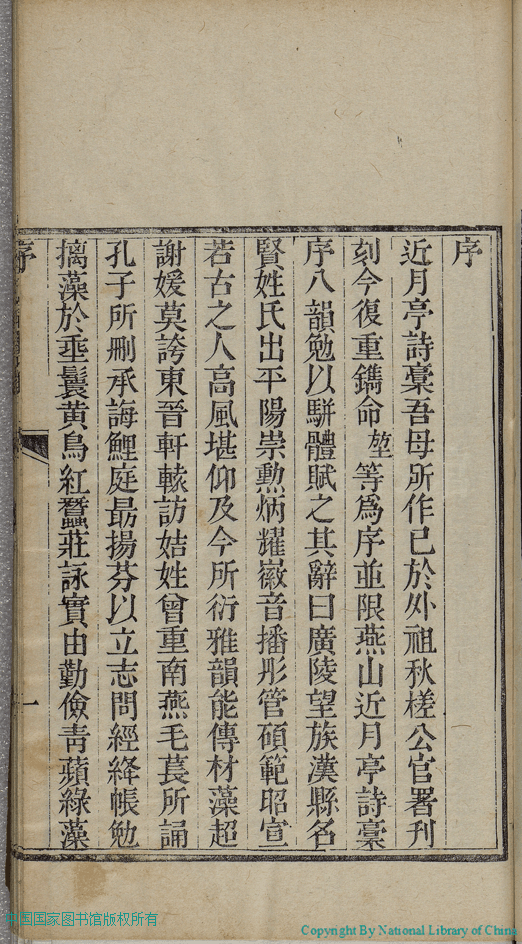 序
近月亭詩稾吾母所作已於外祖秋槎公官署刊
刻今復重鐫命堃等爲序並限燕山近月亭詩稾
序八韻勉以駢體賦之其辭曰廣陵望族漢縣名
賢姓氏出平陽崇勲炳耀徽音播彤管碩範昭宣
若古之人高風堪仰及今所衍雅韻能傳材藻超
謝媛莫誇東晉軒轅訪姞姓曾重南燕毛萇所誦
孔子所刪承誨鯉庭最揚芬以立志問經絳帳勉
摛藻於垂鬟黃鳥紅蠶莊詠實由勤儉靑蘋綠藻
序
一
中国国家图书馆版权所有
Copyright By National Library of China